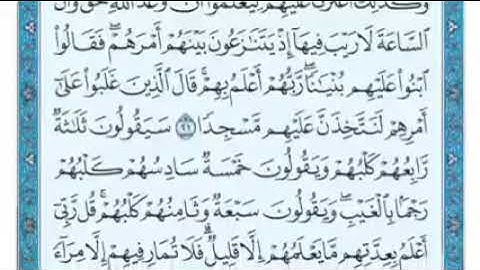 وَكَذَٰلِكَ أَعْثَرْنَا عَلَيْهِمْ لِيَعْلَمُوٓا۟ أَنَّ وَعْدَ ٱللَّهِ حَقٌّ وَأَنَّ
ٱلسَّاعَةَ لَا رَيْبَ فِيهَآ إِذْ يَتَنَٰزَعُونَ بَيْنَهُمْ أَمْرَهُمْ ۖ فَقَالُوا۟
ٱبْنُوا۟ عَلَيْهِم بُنْيَٰنًا ۖ رَّبُّهُمْ أَعْلَمُ بِهِمْ ۚ قَالَ ٱلَّذِينَ غَلَبُوا۟ عَلَىٰٓ
أَمْرِهِمْ لَنَتَّخِذَنَّ عَلَيْهِم مَّسْجِدًا ٢١ سَيَقُولُونَ ثَلَٰثَةٌ
رَّابِعُهُمْ كَلْبُهُمْ وَيَقُولُونَ خَمْسَةٌ سَادِسُهُمْ كَلْبُهُمْ
رَجْمًۢا بِٱلْغَيْبِ ۖ وَيَقُولُونَ سَبْعَةٌ وَثَامِنُهُمْ كَلْبُهُمْ ۚ قُل رَّبِّىٓ
أَعْلَمُ بِعِدَّتِهِم مَّا يَعْلَمُهُمْ إِلَّا قَلِيلٌ ۗ فَلَا تُمَارِ فِيهِمْ إِلَّا مِرَآءً